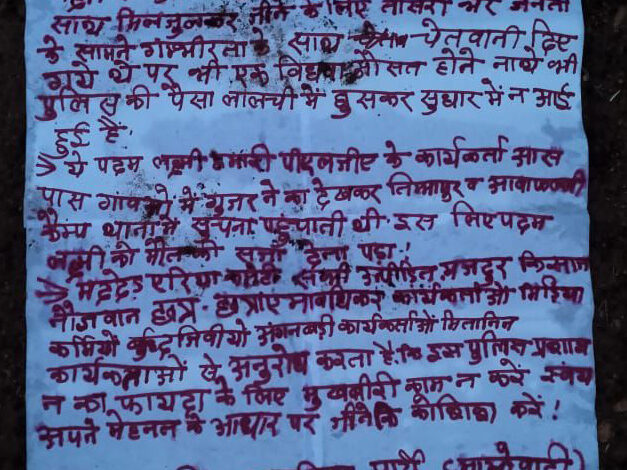 साथ मिलजुलकर जीने के लिए तीसरी बार जनता
के सामने गंम्भीरता के साथ चेतवानी दिए
गये थे पर भी एक विधवा औसत होने नाथे भी
पुलिस की पैसा लालची में घुसकर सुधार में न आई
हुई है.
ये पदम लक्ष्मी हमारी पीएलजीए के कार्यकर्ता आस
पास गावओ में गुजरने का देखकर तिमापुर व आवापल्ली
कैम्प थाना में सूचना पहुचाती थी इस लिए पदम
लक्ष्मी को मौत की सजा देना पडा.!
मद्देड एरिया कमेटी सभी उत्पीड़ित मजदुर किसान
नौजवान छात्र- छात्राए मावाधिकर कार्यकर्ताओ मिडिया
कर्मियो बुद्दजिवीयो अंगनबडी कार्यकर्ताओं मितानिन
कार्यकताओं से अनुरोध करता है.कि इस पुलिस प्रशास
न का फायदा के लिए मुखबीरी काम न करें स्वंय
अपने मेहनत के आधार पर जीनेकि कोशिश करें!
पार्टी (माओवादी)